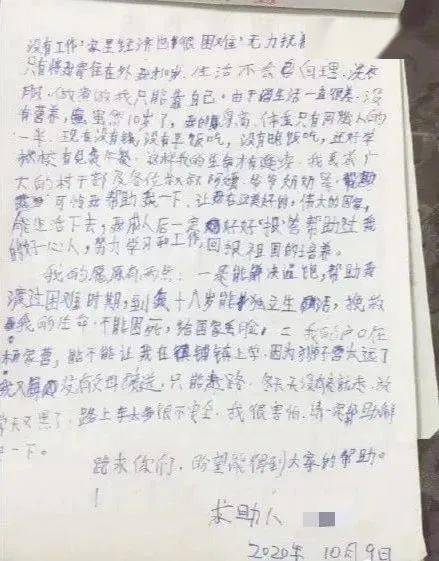 没有工作，家里经济也很困难，无力抚养
只有将我寄住在外，生活不会自理，洗衣
做我只能靠自己。由于生活一直很差，没
有营养，虽然10岁了，身高，体重只有同龄人的
一半。现在没有钱，没有早饭吃，没有晚饭吃，还好学
校有免费午餐，这样我的生命才有延续。我恳求广
大的村干部及各位叔叔阿姨、爷爷奶奶等
可怜我帮助我一下，让我在这美好的，伟大的国家，
能生活下去，我成人后一定好好报答帮助过我
的好心人，努力学习和工作，回报祖国的培养。
我的愿原有两点：一是能解决温饱，帮助我
渡过困难时期，到我十八岁能独立生活，挽救
我的生命，不能困死，给国家丢脸，二我的户口在
杨家营，能不能让我在镇上学，因为狮子营太远了
我又没有父母接送，只能走路，冬天没有就走，放
学天又黑了，路上车太多很不安全，我很害怕，请一定帮助解
一下。
跪求你们，盼望能得到大家的帮助。
求助人
2020年10月9日